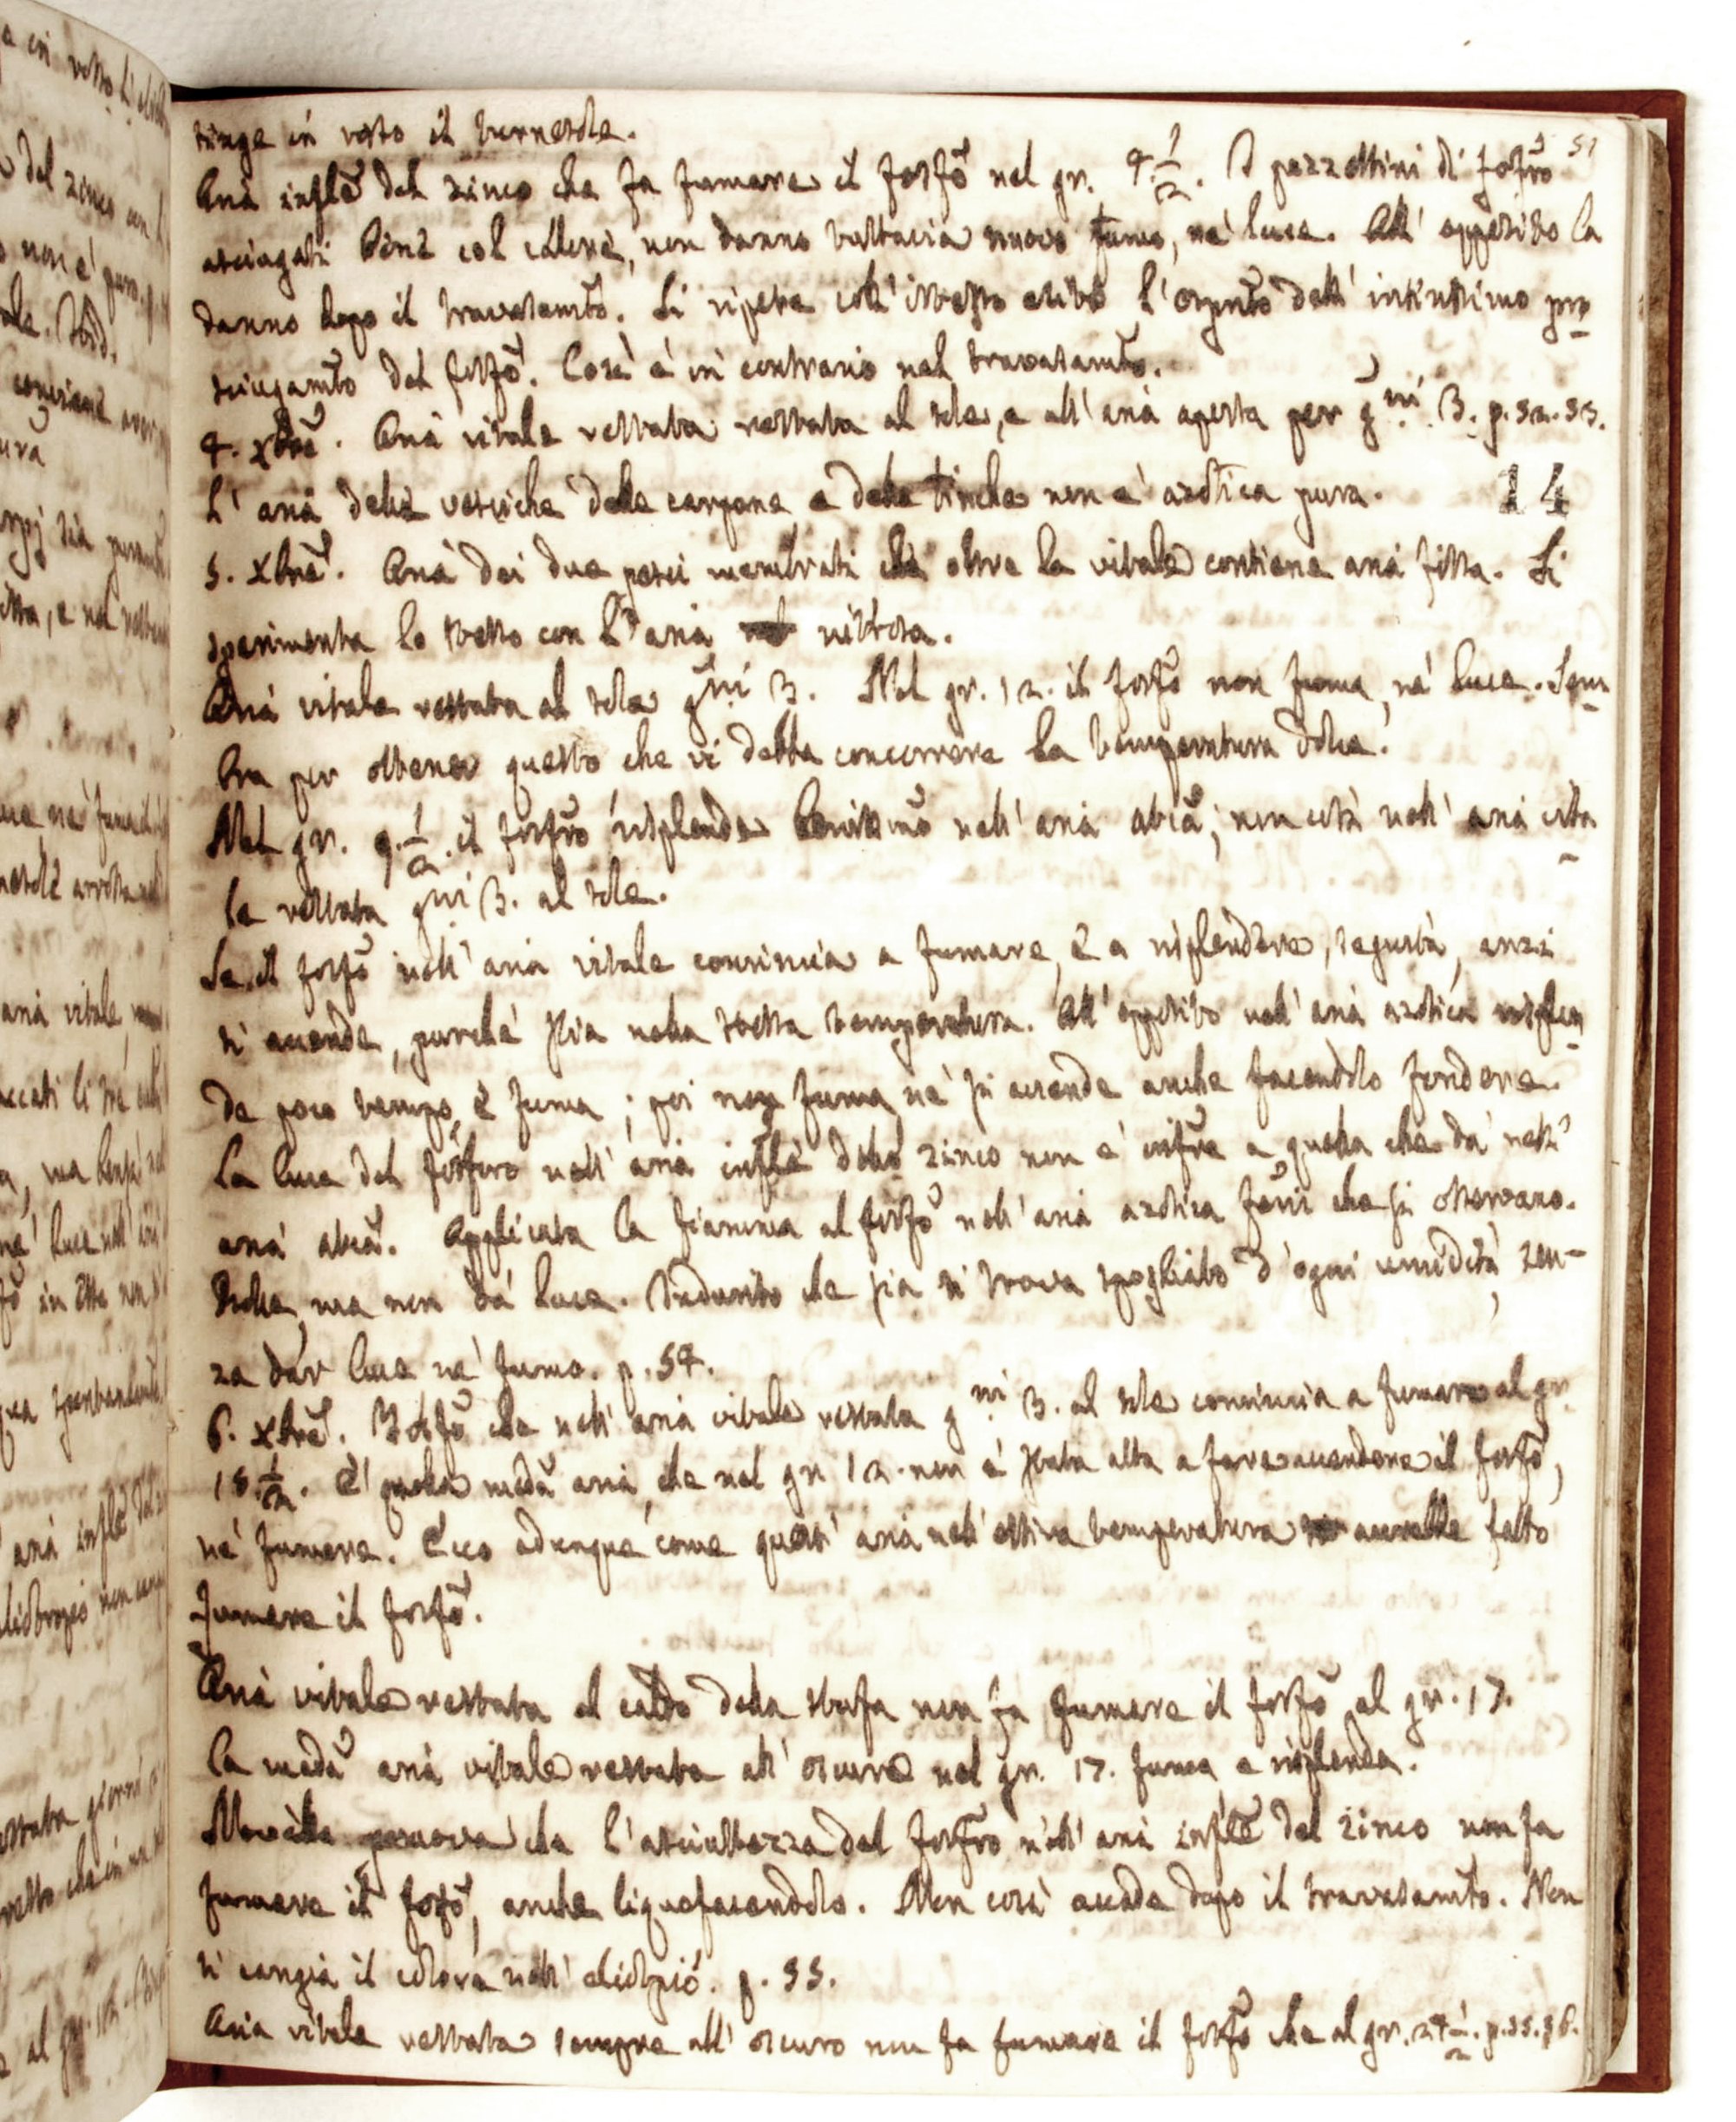 tinge in rosso il turnesole.
51
Aria inflē del zinco che fa fumare il fosfō nel gr. 9.½. I pezzettini di fosfro
asciugati bene col calore, non danno tuttavia nuovo fumo, nè luce. All' opposito la
danno dopo il travasamto. Si ripete coll' istesso esito l'esprito dell'
sciugamto del fosfō. Così è in contrario nel travasamto.
4. Xbre. Aria vitale restata restata al sole, e all' aria aperta per gni 13. p. 52. 53.
L' aria delle vesciche delle carpane e delle tinche non è azotica pura.
14
5. Xbre. Aria dei due pesci mentovati che oltre la vitale contiene aria fissa. Si
sperimenta lo stesso con l' aria nitrosa.
Aria vitale restata al sole gni 13. Nel gr. 12. il fosfō non fuma, nè luce. Sem-
bra per ottener questo che vi debba concorrere la temperatura dolce.
Nel gr. 9.½. il fosfro risplende benissmo nell' aria atmca; non così nell' aria vita
le restata gni 13. al sole.
Se il fosfō nell' aria vitale comincia a fumare, e a risplendere, seguita, anzi
si accende, purchè sia nella stessa temperatura. All' opposito nell' aria azotica risplen
de poco tempo, e fuma; poi non fuma nè si accende anche facendolo fondere.
La luce del fosforo nell' aria inflē dello zinco non è infre a quella che dà nell'
aria atmca. Applicata la fiamma al fosfō nell' aria azotica che si osservano.
Bolle, ma non dà luce. Indurito che sia si trova spogliato d' ogni umidità, sen-
za dar luce nè fumo. p. 54.
6. Xbre. Fosfō che nell' aria vitale restata gni 13. al sole comincia a fumare al gr.
18.½. È quella medā aria, che nel gr. 12. non è stata atta a fare accendere il fosfō,
nè fumare. Ecco adunque come quest' aria nell' estiva temperatura avrebbe fatto
fumare il fosfō.
Aria vitale restata al caldo della stufa non fa fumare il fosfō al gr. 17.
La medā aria vitale restata all' oscuro nel gr. 17. fuma, e risplende.
Novella pruova che l' asciuttezza del fosfro nell' aria inflē del zinco non fa
fumare il fosfō, anche liquefacendolo. Non così accade dopo il travasamto. Non
si cangia il colore nell' p. 55.
Aria vitale restata sempre all' oscuro non fa fumare il fosfō che al gr. 24½. p. 55. 56.